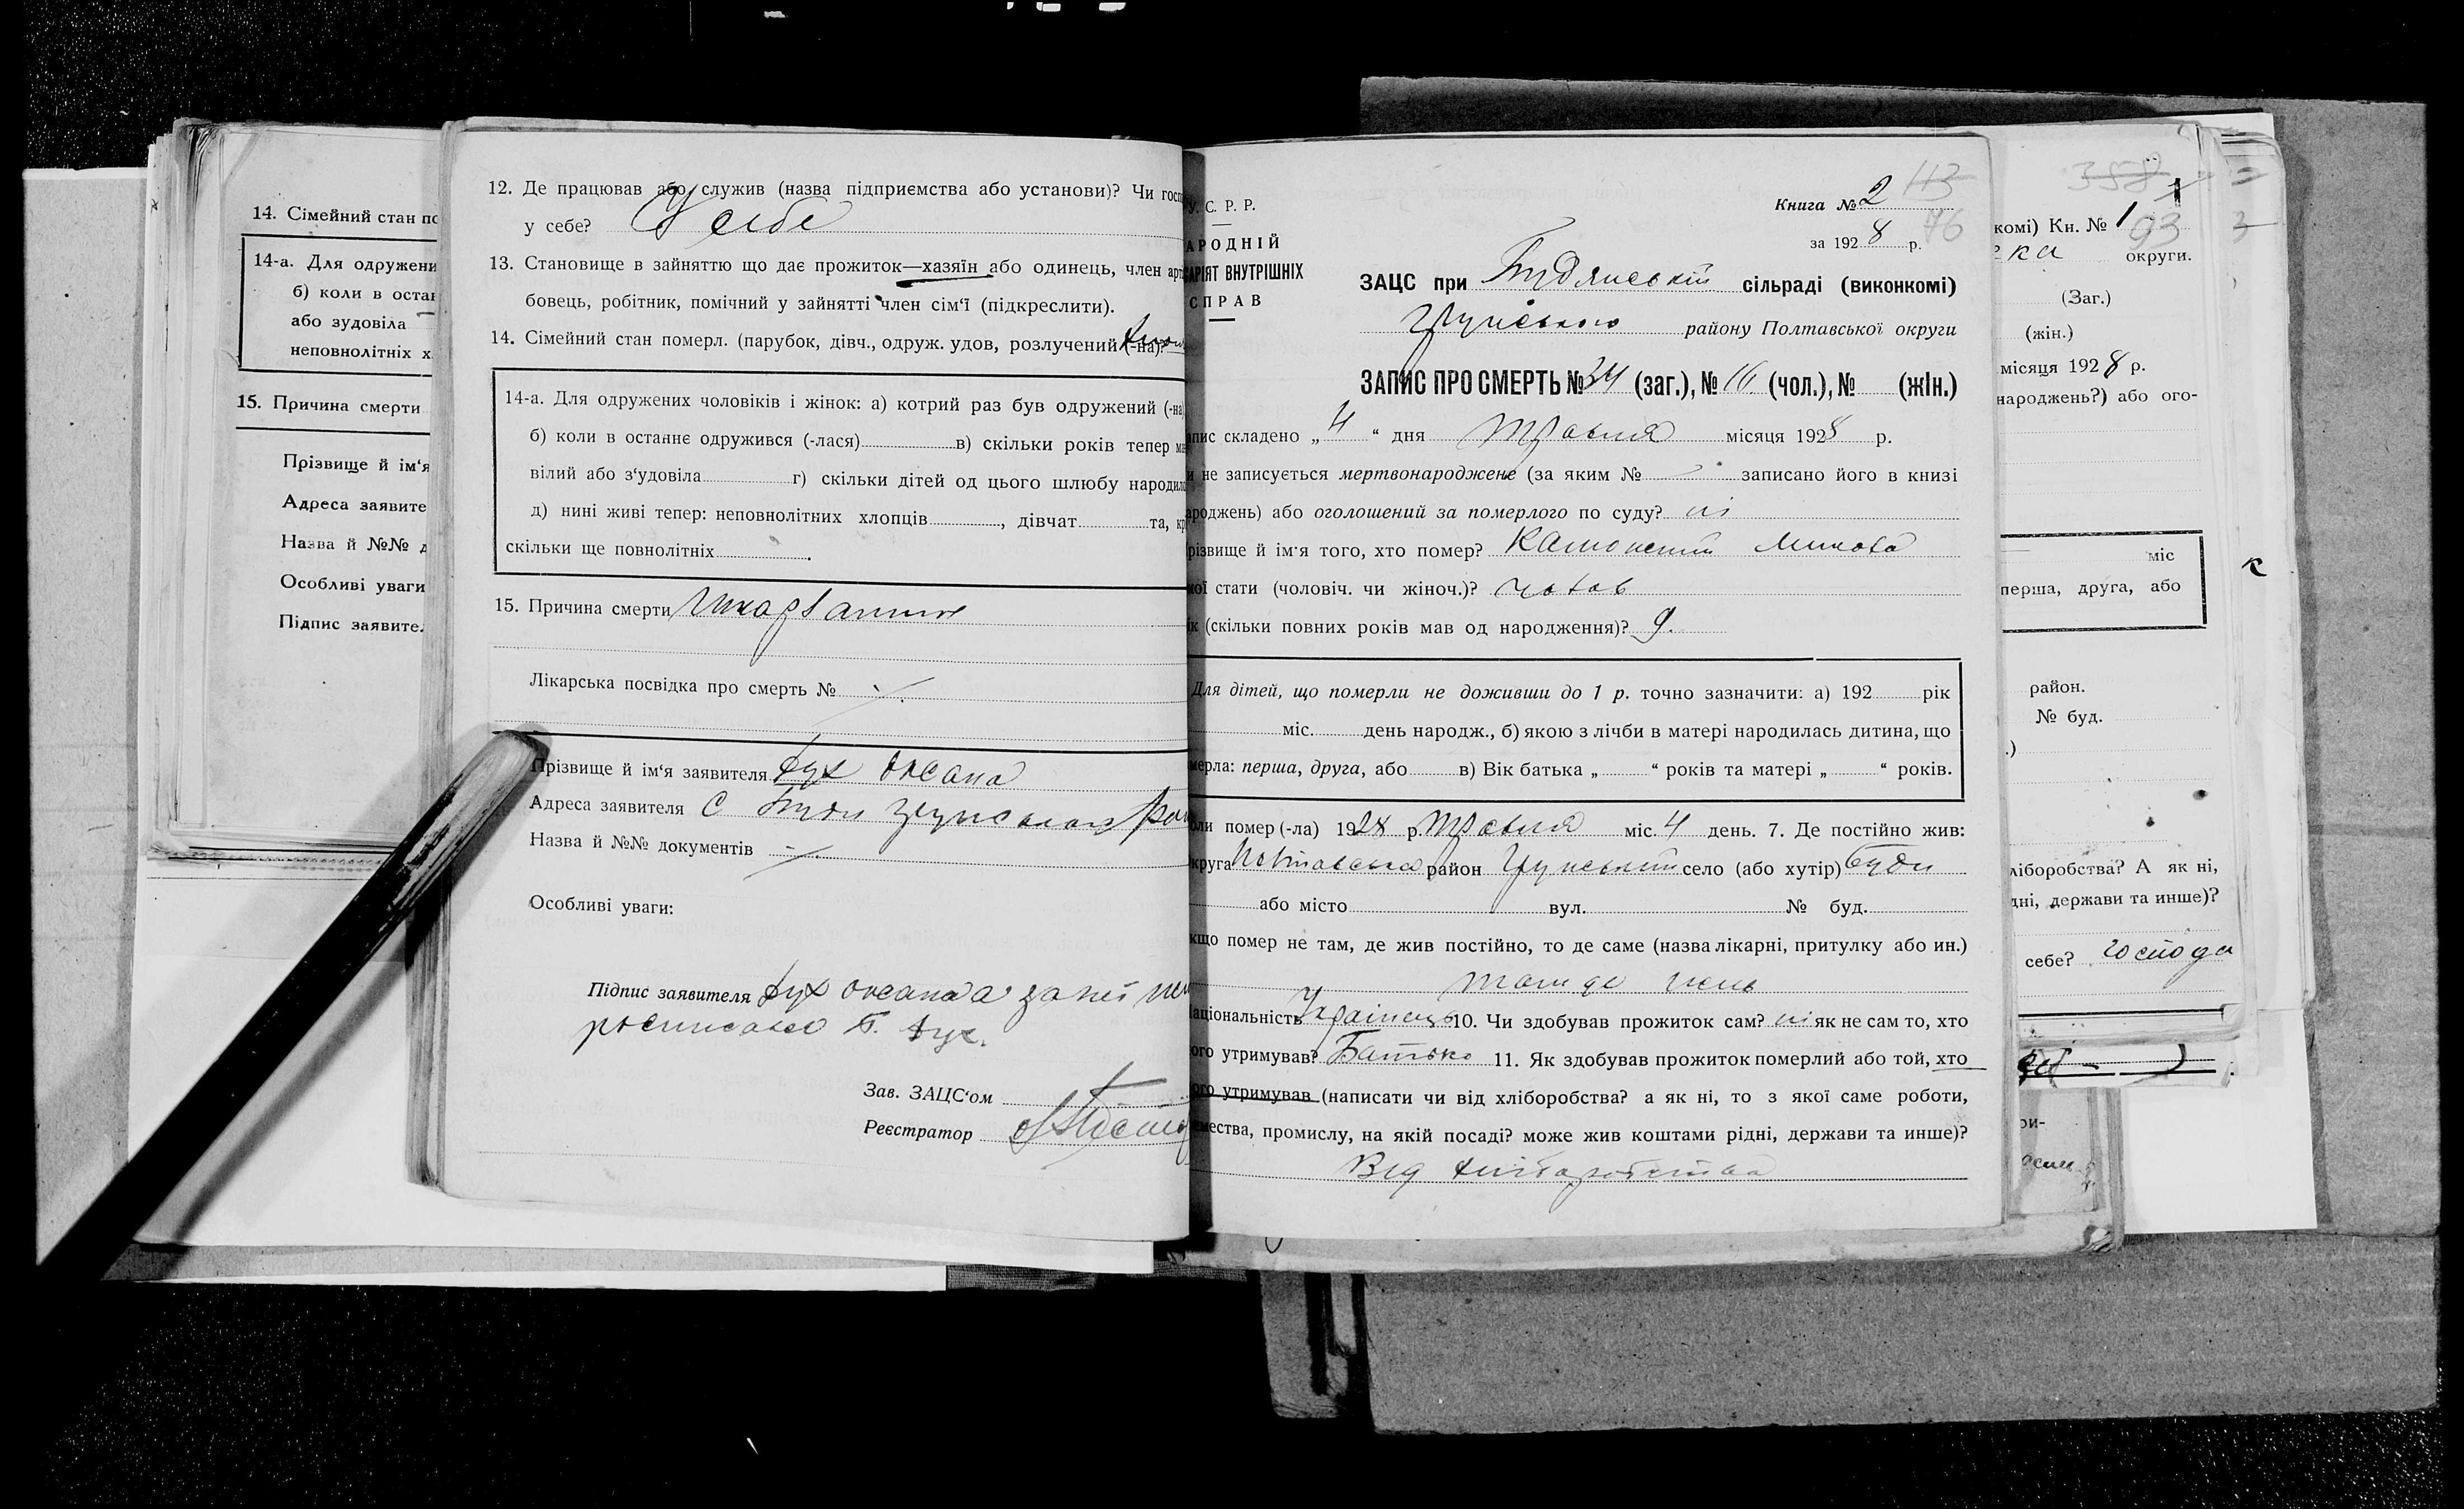 14. Сімейний стан по
14-а. Для одружени
б) коли в остан
або зудовіла
неповнолітніх х
15. Причина смерти
Прізвище й ім‘я
Адреса заявите
Назва й №№ д
Особливі уваги
Підпис заявите
12. Де працював або служив (назва підприємства або установи)? Чи госп
у себе? У себе
13. Становище в зайняттю що дає прожиток—хазяїн або одинець, член арт
бовець, робітник, помічний у зайнятті член сім‘ї (підкреслити).
14. Сімейний стан померл. (парубок, дівч., одруж. удов, розлучений (-на)?
14-а. Для одружених чоловіків і жінок: а) котрий раз був одружений (-на
б) коли в останнє одружився (-лася) в) скільки років тепер ма
вілий або з‘удовіла г) скільки дітей од цього шлюбу народило
д) нині живі тепер: неповнолітних хлопців , дівчат та, кр
скільки ще повнолітніх .
15. Причина смерти Шкарлатина
Лікарська посвідка про смерть №
Прізвище й ім‘я заявителя Оксана
Адреса заявителя С Буди
Назва й №№ документів
Особливі уваги:
Підпис заявителя Оксана а за неї
Зав. ЗАЦС‘ом
Реєстратор
У. С. Р. Р.
АРОДНІЙ
АРІЯТ ВНУТРІШНІХ
СПРАВ
Книга № 2 113
за 1928 р. 76
ЗАЦС при Будянській сільраді (виконкомі)
Грунського району Полтавської округи
ЗАПИС ПРО СМЕРТЬ № 34 (заг.), № 16 (чол.), № (жін.)
апис складено „ 4 “ дня Травня місяця 1928 р.
и не записується мертвонароджене (за яким № записано його в книзі
ароджень) або оголошений за померлого по суду? ні
різвище й ім‘я того, хто помер? Микола
кої стати (чоловіч. чи жіноч.)? чолов
ік (скільки повних років мав од народження)? 9.
Для дітей, що померли не доживши до 1 р. точно зазначити: а) 192 рік
міс. день народж., б) якою з лічби в матері народилась дитина, що
мерла: перша, друга, або в) Вік батька „ “ років та матері „ “ років.
оли помер (-ла) 1928 р. Травня міс. 4 день. 7. Де постійно жив:
округа Полтавська район Грунський село (або хутір) Буди
або місто вул. № буд.
кщо помер не там, де жив постійно, то де саме (назва лікарні, притулку або ин.)
там де жив
аціональність Українець 10. Чи здобував прожиток сам? ні як не сам то, хто
ого утримував? Батько 11. Як здобував прожиток померлий або той, хто
ого утримував (написати чи від хліборобства? а як ні, то з якої саме роботи,
емества, промислу, на якій посаді? може жив коштами рідні, держави та инше)?
Від хліборобства
358
комі) Кн. № 1 93
ка округи.
(Заг.)
(жін.)
місяця 1928 р.
народжень?) або ого-
міс
перша, друга, або
район.
№ буд.
.)
ліборобства? А як ні,
дні, держави та инше)?
себе? господа
ри-